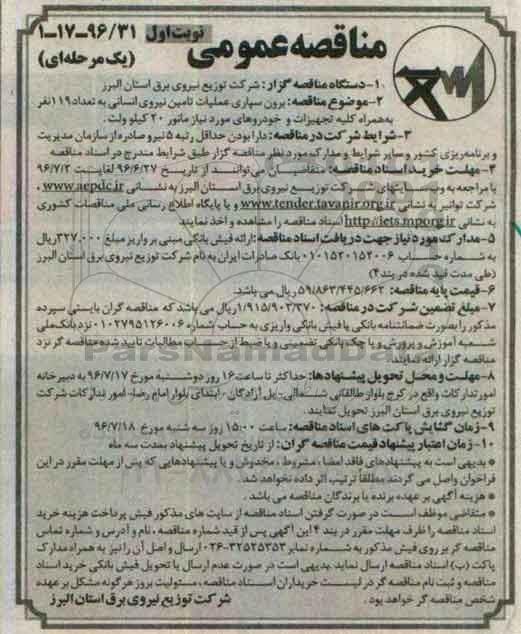 مناقصه عمومی نوبت اول ۹۶/۳۱–۱۷–۱
(یک مرحله‌ای)
۱-دستگاه مناقصه گزار: شرکت توزیع نیروی برق استان البرز
۲-موضوع مناقصه: برون سپاری عملیات تامین نیروی انسانی به تعداد ۱۱۹ نفر
به همراه کلیه تجهیزات و خودروهای مورد نیاز مانور ۲۰ کیلو ولت.
۳-شرایط شرکت در مناقصه: دارا بودن حداقل رتبه ۵ نیرو صادره از سازمان مدیریت
و برنامه‌ریزی کشور و سایر شرایط و مدارک مورد نظر مناقصه گزار طبق شرایط مندرج در اسناد مناقصه
۴-مهلت خرید اسناد مناقصه: متقاضیان می‌توانند از تاریخ ۹۶/۶/۲۷ لغایت ۹۶/۷/۲
با مراجعه به وب سایتهای شرکت توزیع نیروی برق استان البرز به نشانی www.aepdc.ir ،
شرکت توانیر به نشانی www.tender.tavanir.org.ir و یا پایگاه اطلاع رسانی ملی مناقصات کشوری
به نشانی http://iets.mporg.ir اسناد مناقصه را مشاهده و اخذ نمایند.
۵-مدارک مورد نیاز جهت دریافت اسناد مناقصه: ارائه فیش بانکی مبنی بر واریز مبلغ ۳۲۷،۰۰۰ ریال
به شماره حساب ۰۱۰۱۵۲۰۱۵۲۰۰۶ بانک صادرات ایران به نام شرکت توزیع نیروی برق استان البرز
(طی مدت قید شده در بند ۴)
۶-قیمت پایه مناقصه: ۵۹/۸۶۳/۴۴۵/۶۶۲ ریال می‌باشد.
۷-مبلغ تضمین شرکت در مناقصه: ۱/۹۱۵/۹۰۳/۳۷۰ ریال می‌باشد که مناقصه گران بایستی سپرده
مذکور را بصورت ضمانتنامه بانکی یا فیش بانکی واریزی به حساب شماره ۰۱۰۲۷۹۵۱۲۶۰۰۶ نزد بانک ملی
شعبه آموزش و پرورش و یا چک بانکی تضمینی و یا ضبط از حساب مطالبات تایید شده مناقصه گر نزد
مناقصه گزار ارائه نمایند.
۸-مهلت و محل تحویل پیشنهادها: حداکثر تا ساعت ۱۶ روز دوشنبه مورخ ۹۶/۷/۱۷ به دبیرخانه
امور تدارکات واقع در کرج بلوار طالقانی شمالی- پل آزادگان - ابتدای بلوار امام رضا- امور تدارکات شرکت
توزیع نیروی برق استان البرز تحویل نمایند.
۹-زمان گشایش پاکت های اسناد مناقصه: ساعت ۱۵:۰۰ روز سه شنبه مورخ ۹۶/۷/۱۸
۱۰-زمان اعتبار پیشنهاد قیمت مناقصه گران: از تاریخ تحویل پیشنهاد بمدت سه ماه
* بدیهی است به پیشنهادهای فاقد امضا، مشروط، مخدوش و یا پیشنهادهایی که پس از مهلت مقرر در این
فراخوان واصل می گردند مطلقاً ترتیب اثر داده نخواهد شد.
* هزینه آگهی بر عهده برنده یا برندگان مناقصه می باشد.
* متقاضی موظف است در صورت گرفتن اسناد مناقصه از سایت های مذکور فیش پرداخت هزینه خرید
اسناد مناقصه را ظرف مهلت مقرر در بند ۴ این آگهی پس از قید شماره مناقصه، نام و آدرس و شماره تماس
مناقصه گر بر روی فیش مذکور به شماره نمابر ۳۲۵۲۵۳۵۳-۰۲۶ ارسال و اصل آن را نیز به همراه مدارک
پاکت (ب) اسناد مناقصه ارسال نماید. بدیهی است در صورت عدم ارسال یا تحویل فیش بانکی خرید اسناد
مناقصه و ثبت نام مناقصه گر در لیست خریداران اسناد مناقصه، مسئولیت بروز هرگونه مشکل بر عهده
شخص مناقصه گر خواهد بود.
شرکت توزیع نیروی برق استان البرز
ParsNamadData